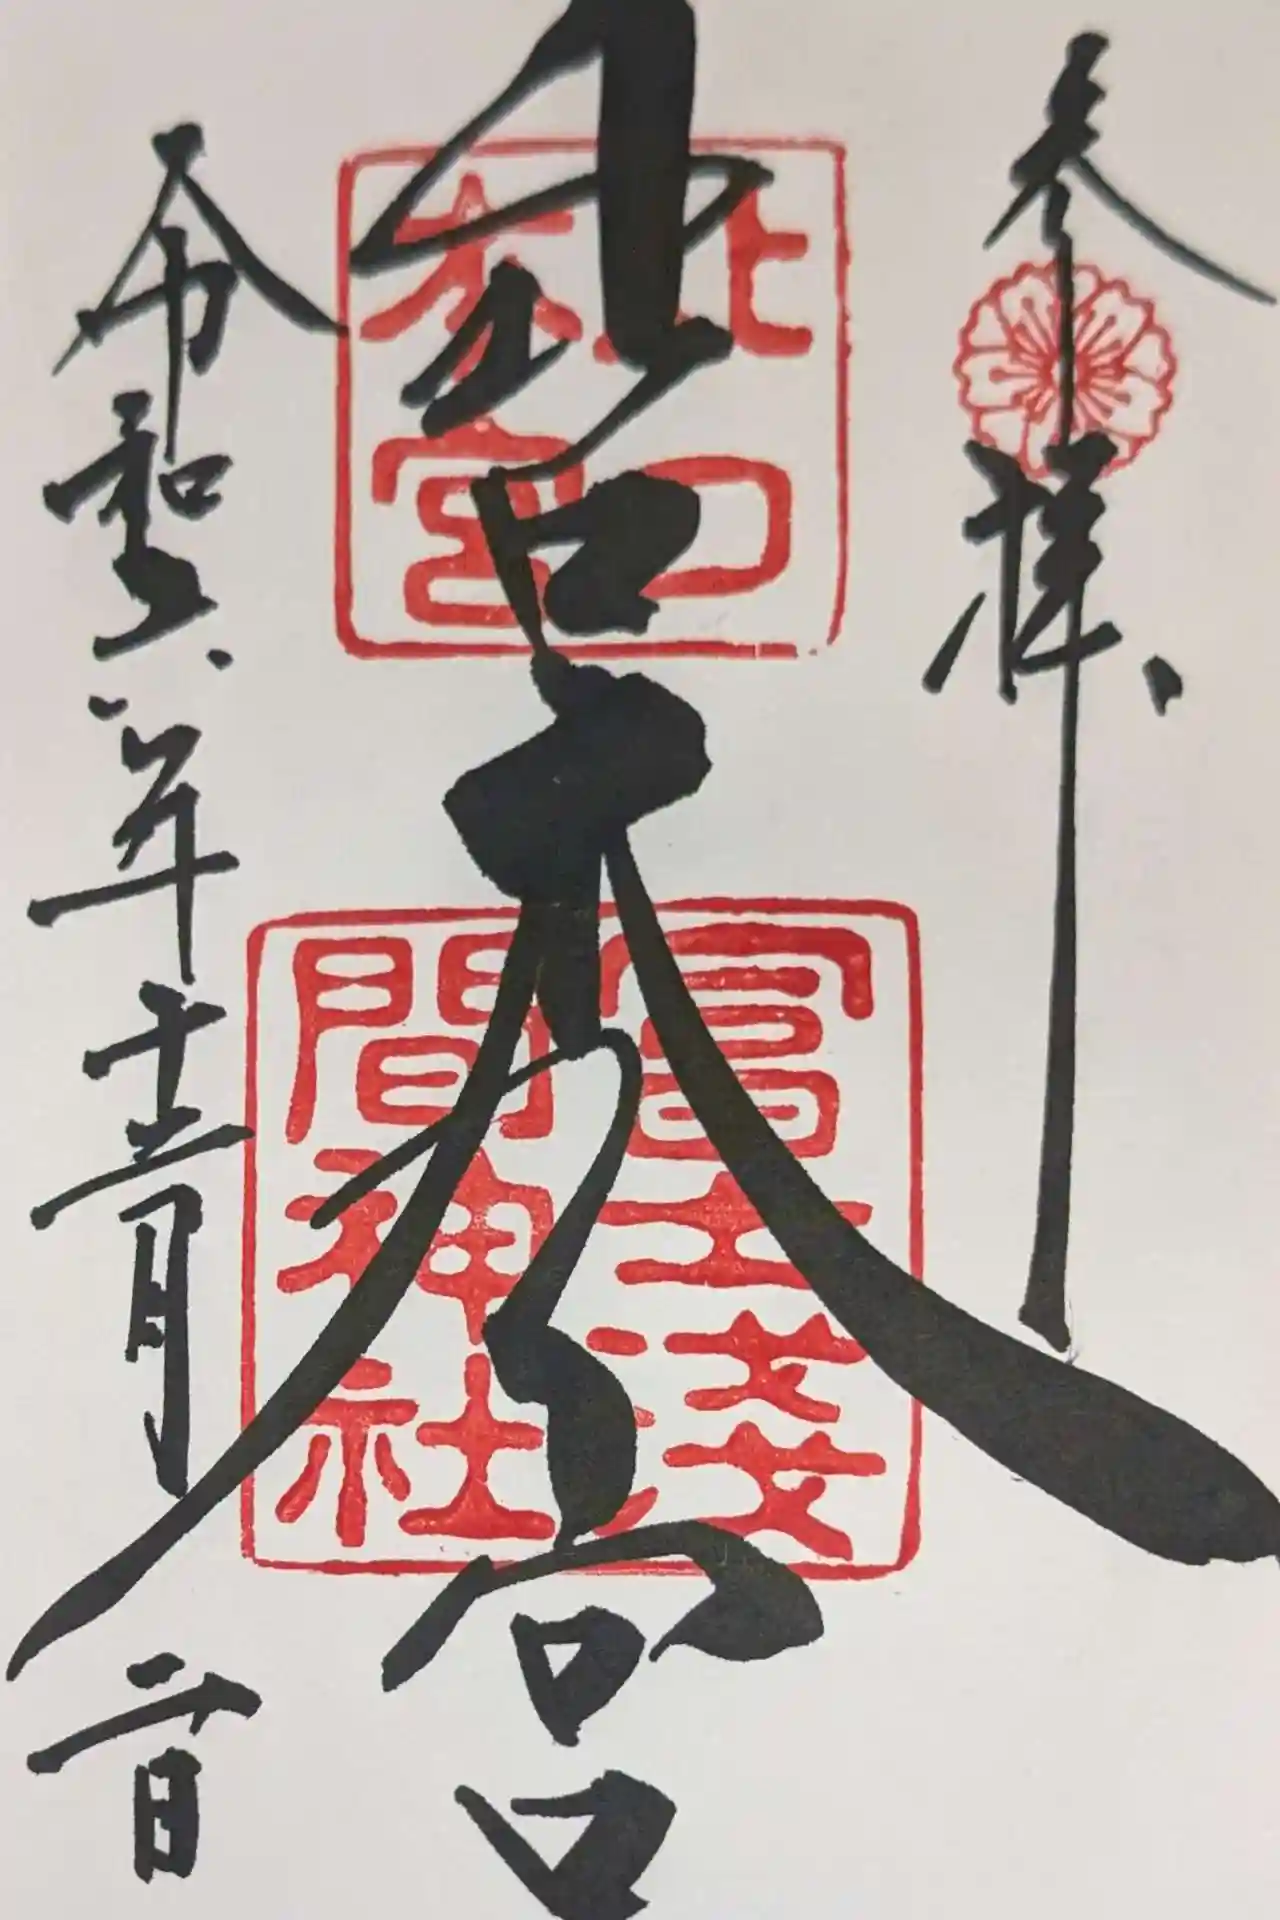 奉拝
北口本宮
北口
本宮
冨士淺
間神社
令和六年十二月二日